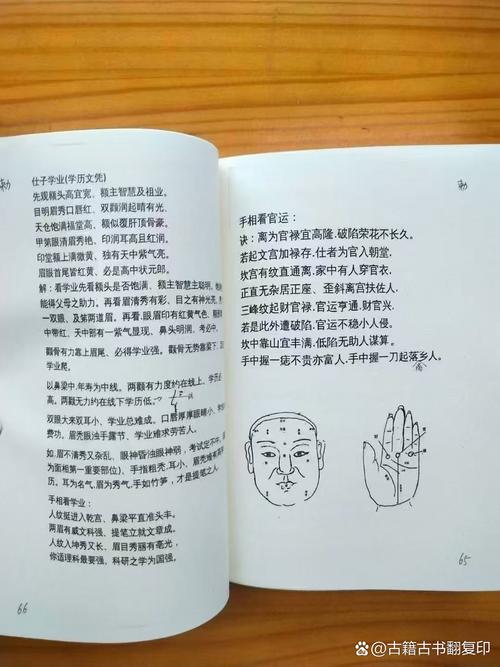 仕子学业(学历文凭)
先观额头高宜宽、额主智慧及祖业。
目明眉秀口唇红、双颧润起晴有光、
天仓饱满福堂高、额似覆肝顶骨豪。
甲第眼清眉秀艳、印润耳高且红润。
印堂额上满微黄、独有天中紫气亮。
眉眼首尾皆红黄、必是高中状元郎。
解：看学业先看额头是否饱满、额主智慧主聪明、
能得父母之助力。再看眉清秀有彩、目之有神光亮、
一双眼、及第两道眉。再看.眼眉印有红黄气色、额
中带红、天中部有一紫气显现、鼻头明润、考必中.
颧骨有力靠上眉尾、必得学业强。颧骨无势靠梁下、
学业爬。
以鼻梁中.年寿为中线。两颧有力度约在线上、学历
高。两颧无力约在线下学历低。
双眼大来双耳小、学业总难成。口唇厚厚眼睛小、学
费功，眉秃眼浊手露节、学业难求劳苦人。
如.眉不清秀又杂乱、眼神昏浊眼神弱，考试定不中，
为面相第一重要部位)、手指粗秃.耳小、眉秃难有高
历。耳为名气.眉为秀气.手如竹笋，才是提笔之人.
手相看学业：
人纹挺进入乾宫、鼻梁平直准头丰。
两眉有威文科强、提笔立就文章成。
人纹入坤秀又长、眉目秀丽有毫光，
你适理科最要强、科研之学为国强。
66
手相看官运：
诀：离为官禄宜高隆.破陷荣花不长久。
若起文宫加禄存.仕者为官入朝堂.
坎宫有纹直通离.家中有人穿官衣.
正直无杂居正座、歪斜离宫扶佐人.
三峰纹起财官禄.官运亨通.财官兴.
若是此外遭破陷.官运不稳小人侵.
坎中靠山宜丰满.低陷无助人谋算。
手中握一痣不贵亦富人.手中握一刀起落乡人。
65
@古籍古书翻复印